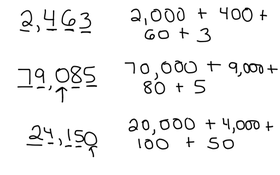 2,463 2,000 + 400 +
60 + 3
79,085 70,000 + 9,000 +
80 + 5
24,150 20,000 + 4,000 +
100 + 50